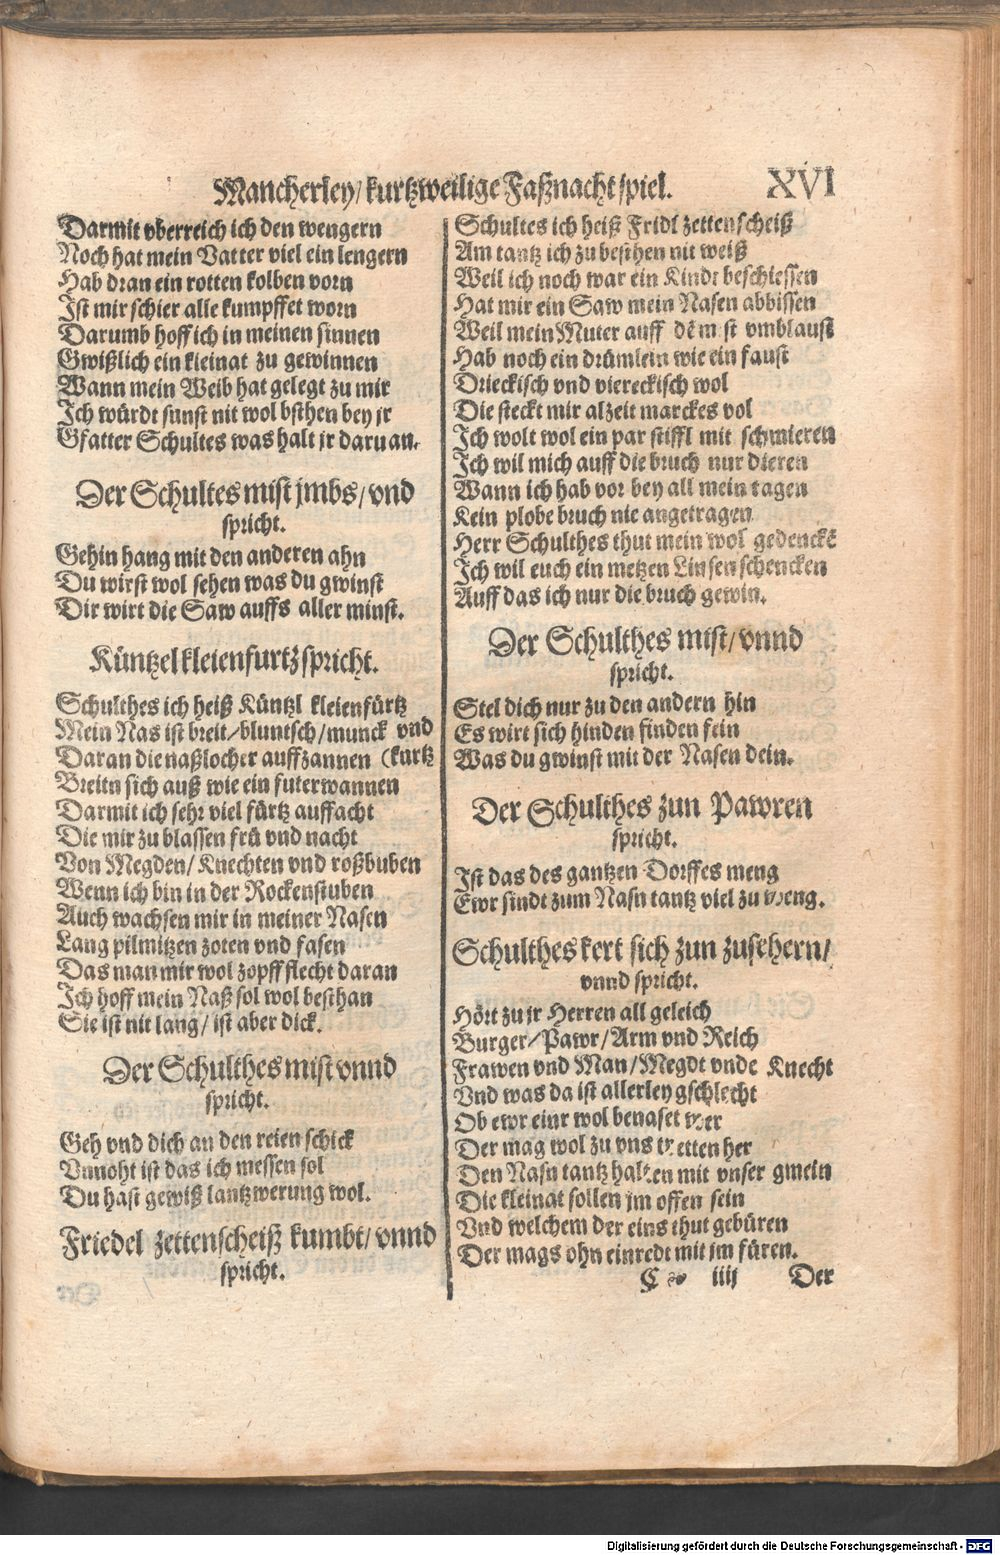 Mancherley/ kurtzweilige Faßnacht spiel. XVI
Darmit vberreich ich den wengern
Noch hat mein Vatter viel ein lengern
Hab dran ein rotten kolben vorn
Ist mir schier alle kumpffet worn
Darumb hoff ich in meinen sinnen
Gwißlich ein kleinat zu gewinnen
Wann mein Weib hat gelegt zu mir
Ich würdt sunst nit wol bsthen bey jr
Gfatter Schultes was halt jr daruan.
Der Schultes mist jmbs/ vnd
spricht.
Gehin hang mit den anderen ahn
Du wirst wol sehen was du gwinst
Dir wirt die Saw auffs aller minst.
Küntzel kleienfurtz spricht.
Schulthes ich heiß Küntzl kleienfürtz
Mein Nas ist breit/bluntsch/munck vnd
Daran die naßlocher auffzannen (kurtz
Breitn sich auß wie ein futerwannen
Darmit ich sehr viel fürtz auffacht
Die mir zu blassen frü vnd nacht
Von Megden/ Knechten vnd roßbuben
Wenn ich bin in der Rockenstuben
Auch wachsen mir in meiner Nasen
Lang pilmitzen zoten vnd fasen
Das man mir wol zöpff flecht daran
Ich hoff mein Naß sol wol besthan
Sie ist nit lang/ ist aber dick.
Der Schulthes mist vnnd
spricht.
Geh vnd dich an den reien schick
Vnnoht ist das ich messen sol
Du hast gewiß lantzwerung wol.
Friedel zettenscheiß kumbt/ vnnd
spricht.
Schultes ich heiß Fridl zettenscheiß
Am tantz ich zu besthen nit weiß
Weil ich noch war ein Kindt beschiessen
Hat mir ein Saw mein Nasen abbissen
Weil mein Muter auff dẽ mist vmblauft
Hab noch ein drümlein wie ein faust
Drieckisch vnd viereckisch wol
Die steckt mir alzeit marckes vol
Ich wolt wol ein par stiffl mit schmieren
Ich wil mich auff die bruch nur dieren
Wann ich hab vor bey all mein tagen
Kein plobe bruch nie angetragen
Herr Schulthes thut mein wol gedenckẽ
Ich wil euch ein metzen Linsen schencken
Auff das ich nur die bruch gewin.
Der Schulthes mist/ vnnd
spricht.
Stel dich nur zu den andern hin
Es wirt sich hinden finden fein
Was du gwinst mit der Nasen dein.
Der Schulthes zun Pawren
spricht.
Ist das des gantzen Dorffes meng
Ewr sindt zum Nasn tantz viel zu weng.
Schulthes kert sich zun zusehern/
vnnd spricht.
Hört zu jr Herren all geleich
Burger/Pawr/Arm vnd Reich
Frawen vnd Man/Megdt vnde Knecht
Vnd was da ist allerley gschlecht
Ob ewr einr wol benaset wer
Der mag wol zu vns tretten her
Den Nasn tantz halten mit vnser gmein
Die kleinat sollen jm offen sein
Vnd welchem der eins thut gebüren
Der mags ohn einredt mit jm füren.
C iiij Der
Digitalisierung gefördert durch die Deutsche Forschungsgemeinschaft - DFG